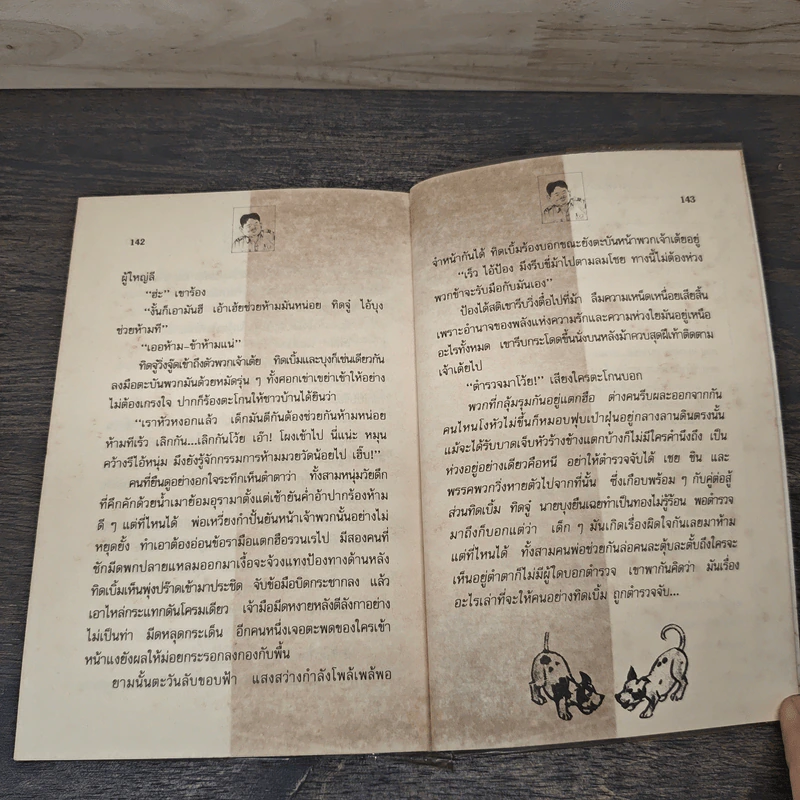 142
ผู้ใหญ่ลี
"ฮ่ะ" เขาร้อง
"งั้นก็เอามันฮึ เอ้าเฮ้ยช่วยห้ามมันหน่อย ทิดจู๋ ไอ้บุง
ช่วยห้ามที"
"เออห้าม-ข้าห้ามแน่"
ทิดจู๋วิ่งจู๊ดเข้าถึงตัวพวกเจ้าเต้ย ทิดเบิ้มและบุงก็เช่นเดียวกัน
ลงมือตะบันพวกมันด้วยหมัดรุ่น ๆ ทั้งศอกเข่าเขย่าเข้าให้อย่าง
ไม่ต้องเกรงใจ ปากก็ร้องตะโกนให้ชาวบ้านได้ยินว่า
"เราหัวหงอกแล้ว เด็กมันตีกันต้องช่วยกันห้ามหน่อย
ห้ามทีเร้ว เลิกกัน...เลิกกันโว้ย เอ้า! โผงเข้าไป นี่แน่ะ หมุน
คว้างรึไอ้หนุ่ม มึงยังรู้จักกรรมการห้ามมวยวัดน้อยไป เอี๊บ!"
คนที่ยืนดูอย่างอกใจระทึกเห็นตำตาว่า ทั้งสามหนุ่มวัยดึก
ที่คึกคักด้วยน้ำเมาย้อมอุรามาตั้งแต่เช้ายันค่ำอ้าปากร้องห้าม
ดี ๆ แต่ที่ไหนได้ พ่อเหวี่ยงกำปั้นยันหน้าเจ้าพวกนั้นอย่างไม่
หยุดยั้ง ทำเอาต้องอ่อนข้อรามือแตกฮือรวนเรไป มีสองคนที่
ชักมีดพกปลายแหลมออกมาเงื้อจะจ้วงแทงป้องทางด้านหลัง
ทิดเบิ้มเห็นพุ่งปร๊าดเข้ามาประชิด จับข้อมือบิดกระชากลง แล้ว
เอาไหล่กระแทกต้นโครมเดียว เจ้ามือมีดหงายหลังตีลังกาอย่าง
ไม่เป็นท่า มีดหลุดกระเด็น อีกคนหนึ่งเจอตะพดของใครเข้า
หน้าแงยังผลให้ม่อยกระรอกลงกองกับพื้น
ยามนั้นตะวันลับขอบฟ้า แสงสว่างกำลังโพล้เพล้พอ
143
จำหน้ากันได้ ทิดเบิ้มร้องบอกขณะยังตะบันหน้าพวกเจ้าเต้ยอยู่
"เร็ว ไอ้ป้อง มึงรีบขี่ม้าไปตามลมโชย ทางนี้ไม่ต้องห่วง
พวกข้าจะรับมือกับมันเอง"
ป้องได้สติเขารีบวิ่งตื๋อไปที่ม้า ลืมความเหน็ดเหนื่อยเสียสิ้น
เพราะอำนาจของพลังแห่งความรักและความห่วงใยมันอยู่เหนือ
อะไรทั้งหมด เขารีบกระโดดขึ้นนั่งบนหลังม้าควบสุดฝีเท้าติดตาม
เจ้าเต้ยไป
"ตำรวจมาโว้ย!" เสียงใครตะโกนบอก
พวกที่กลุ้มรุมกันอยู่แตกฮือ ต่างคนรีบผละออกจากกัน
คนไหนโงหัวไม่ขึ้นก็หมอบฟุบเป่าฝุ่นอยู่กลางลานดินตรงนั้น
แม้จะได้รับบาดเจ็บหัวร้างข้างแตกบ้างก็ไม่มีใครคำนึงถึง เป็น
ห่วงอยู่อย่างเดียวคือหนี อย่าให้ตำรวจจับได้ เชย ชิน และ
พรรคพวกวิ่งหายตัวไปจากที่นั้น ซึ่งเกือบพร้อม ๆ กับคู่ต่อสู้
ส่วนทิดเบิ้ม ทิดจู๋ นายบุงยืนเฉยทำเป็นทองไม่รู้ร้อน พอตำรวจ
มาถึงก็บอกแต่ว่า เด็ก ๆ มันเกิดเรื่องผิดใจกันเลยมาห้าม
แต่ที่ไหนได้ ทั้งสามคนพ่อช่วยกันล่อคนละตุ้บละตั้บถึงใครจะ
เห็นอยู่ตำตาก็ไม่มีผู้ใดบอกตำรวจ เขาพากันคิดว่า มันเรื่อง
อะไรเล่าที่จะให้คนอย่างทิดเบิ้ม ถูกตำรวจจับ...